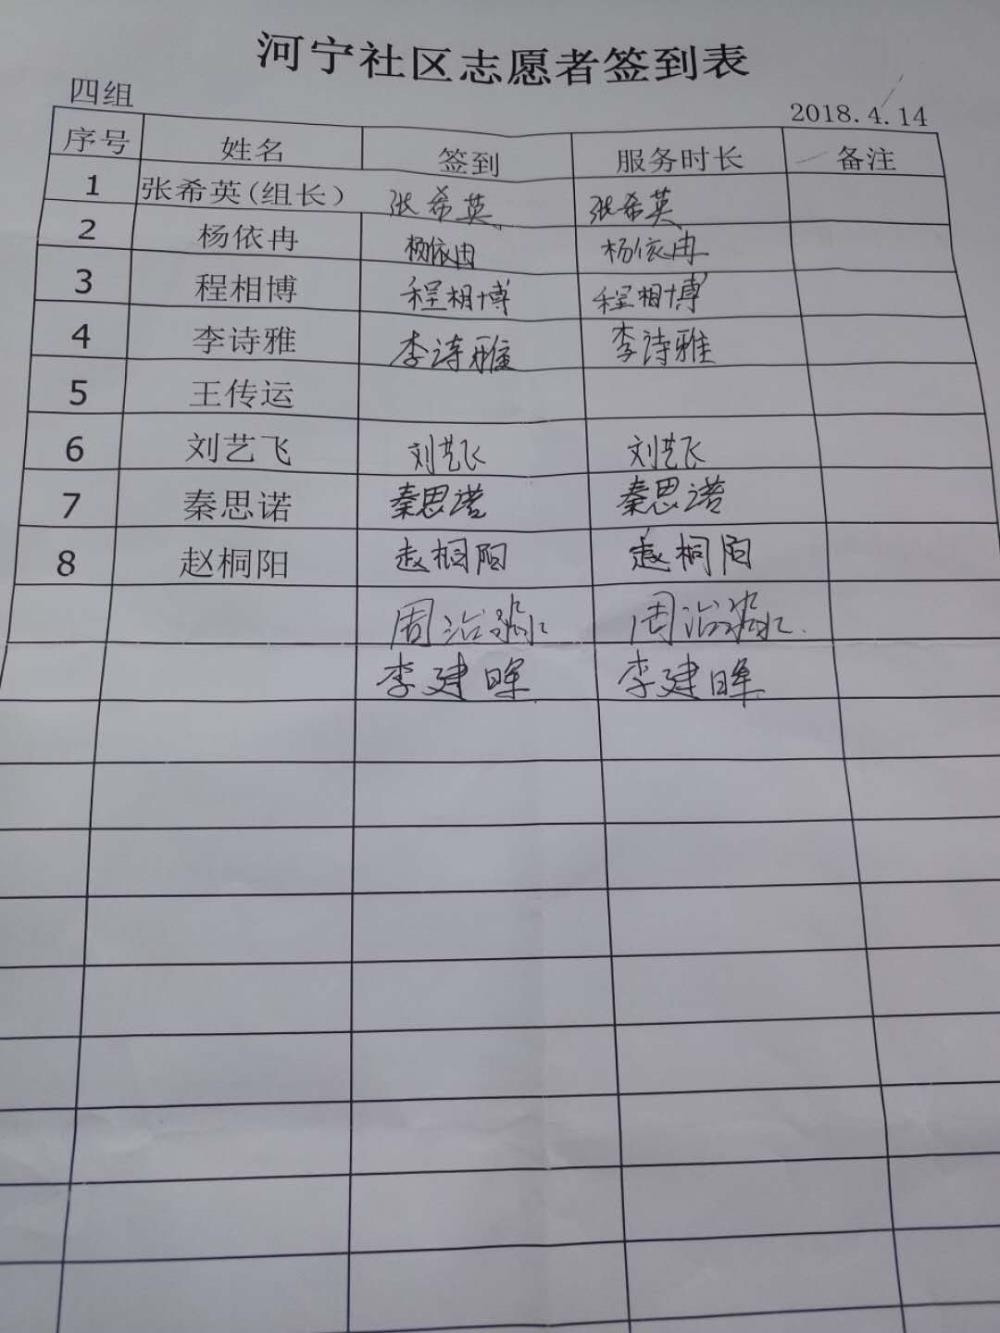 河宁社区志愿者签到表
四组
2018.4.14
序号 姓名 签到 服务时长 备注
1 张希英(组长) 张希英 张希英
2 杨依冉 杨依冉 杨依冉
3 程相博 程相博 程相博
4 李诗雅 李诗雅 李诗雅
5 王传运
6 刘艺飞 刘艺飞 刘艺飞
7 秦思诺 秦思诺 秦思诺
8 赵桐阳 赵桐阳 赵桐阳
周治 周治
李建晖 李建晖